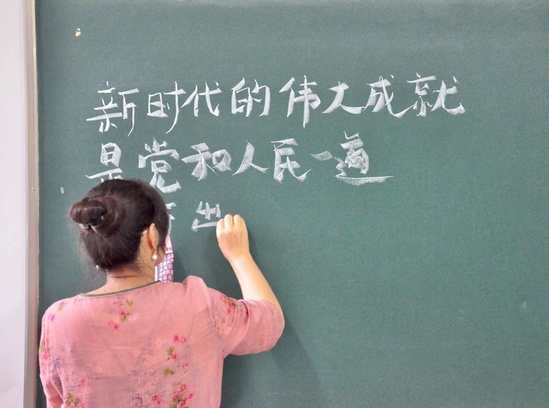 新时代的伟大成就
是党和人民一道
出